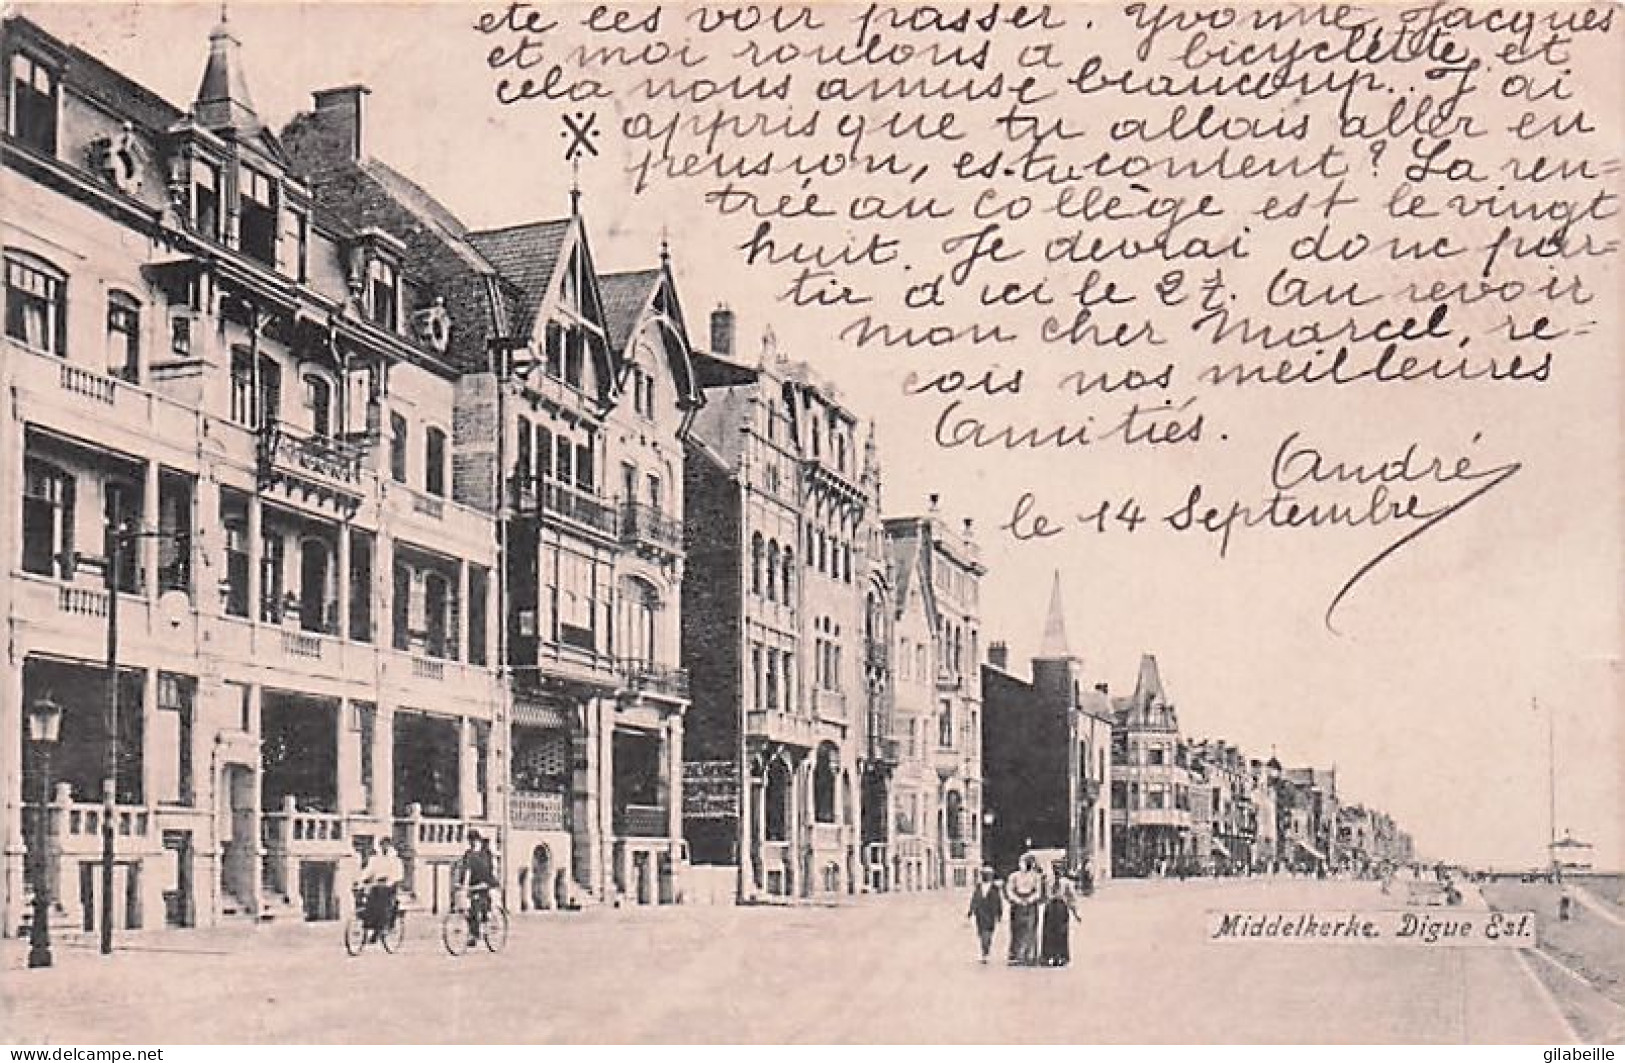 été les voir passer. Yvonne, Jacques
et moi roulons à bicyclette et
cela nous amuse beaucoup.. J'ai
appris que tu allais aller en
pension, es-tu content? La ren=
trée au collège est le vingt
huit. Je devrai donc par=
tir d'ici le 27. Au revoir
mon cher Marcel, re=
çois nos meilleures
Amitiés.
André
le 14 Septembre
Middelkerke. Digue Est.
www.delcampe.net
gilabeille